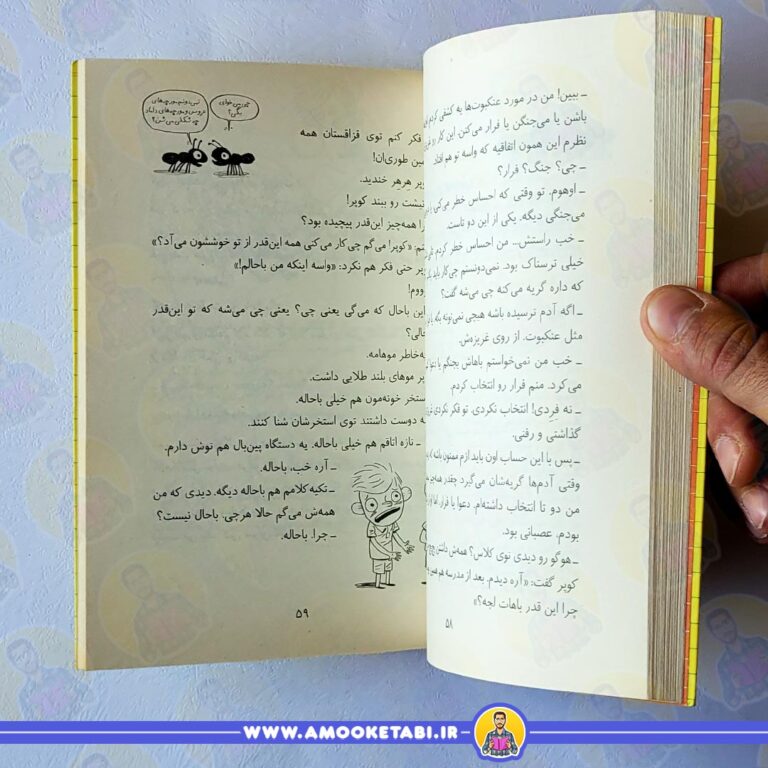 ـ ببین! من در مورد عنکبوت‌ها یه کشفی کردم.
باشن یا می‌جنگن یا فرار می‌کنن. این کار رو
نظرم این همون اتفاقیه که واسه تو هم افتاد.
ـ چی؟ جنگ؟ فرار؟
ـ اوهوم. تو وقتی که احساس خطر می‌کنی یا
می‌جنگی دیگه. یکی از این دو تاست.
ـ خب راستش... من احساس خطر کردم.
خیلی ترسناک بود. نمی‌دونستم چی‌کار باید
که داره گریه می‌کنه چی می‌شه گفت؟
ـ اگه آدم ترسیده باشه هیچی نمی‌تونه بگه.
مثل عنکبوت. از روی غریزه‌ش.
ـ خب من نمی‌خواستم باهاش بجنگم یا دعوا
می‌کرد. منم فرار رو انتخاب کردم.
ـ نه فردی! انتخاب نکردی. تو فکر نکردی
گذاشتی و رفتی.
ـ پس با این حساب اون باید ازم ممنون باشه
وقتی آدم‌ها گریه‌شان می‌گیرد چقدر
من دو تا انتخاب داشته‌ام. دعوا یا فرار.
بودم. عصبانی بود.
ـ هوگو رو دیدی توی کلاس؟ همه‌ش داشتی
کوپر گفت: «آره دیدم. بعد از مدرسه هم
چرا این قدر باهات لجه؟»
۵۸
چه‌ شکلی می‌شن؟
فکر کنم توی قزاقستان همه
طوری‌ان!
هرهر خندید.
رو ببند کوپر!
همه‌چیز این‌قدر پیچیده بود؟
«کوپر! می‌گم چی‌کار می‌کنی همه این‌قدر از تو خوششون می‌آد؟»
حتی فکر هم نکرد: «واسه اینکه من باحالم!»
این باحال که می‌گی یعنی چی؟ یعنی چی می‌شه که تو این‌قدر
موهامه.
موهای بلند طلایی داشت.
خونه‌مون هم خیلی باحاله.
دوست داشتند توی استخرشان شنا کنند.
ـ تازه اتاقم هم خیلی باحاله. یه دستگاه پین‌بال هم توش دارم.
ـ آره خب، باحاله.
ـ تکیه‌کلامم هم باحاله دیگه. دیدی که من
همه‌ش می‌گم حالا هرچی. باحال نیست؟
ـ چرا. باحاله.
۵۹
WWW.AMOOKETABI.IR